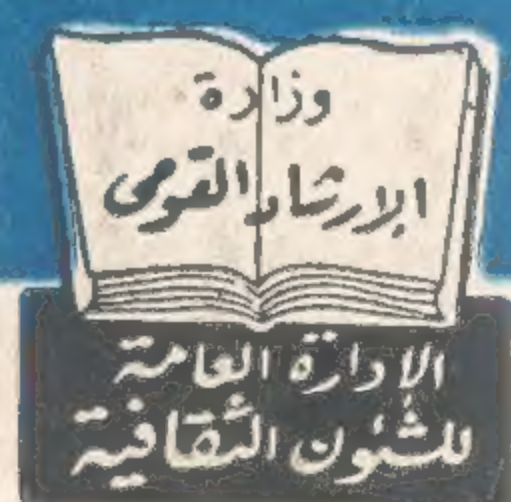 وزارة
الإرشاد القومى
الإدارة العامة
للشئون الثقافية